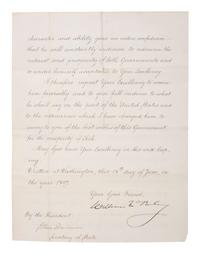 character and ability gives me entire confidence
that he will constantly endeavor to advance the
interest and prosperity of both Governments and
to render himself acceptable to Your Excellency.
I therefore request Your Excellency to receive
him favorably and to give full credence to what
he shall say on the part of the United States and
to the assurances which I have charged him to
convey to you of the best wishes of this Government
for the prosperity of
May God have Your Excellency in His wise keep-
ing.
Written at Washington, this day of June, in
the year 1897.
Your Good Friend,
William McKinley
By the President:
John Sherman
Secretary of State.